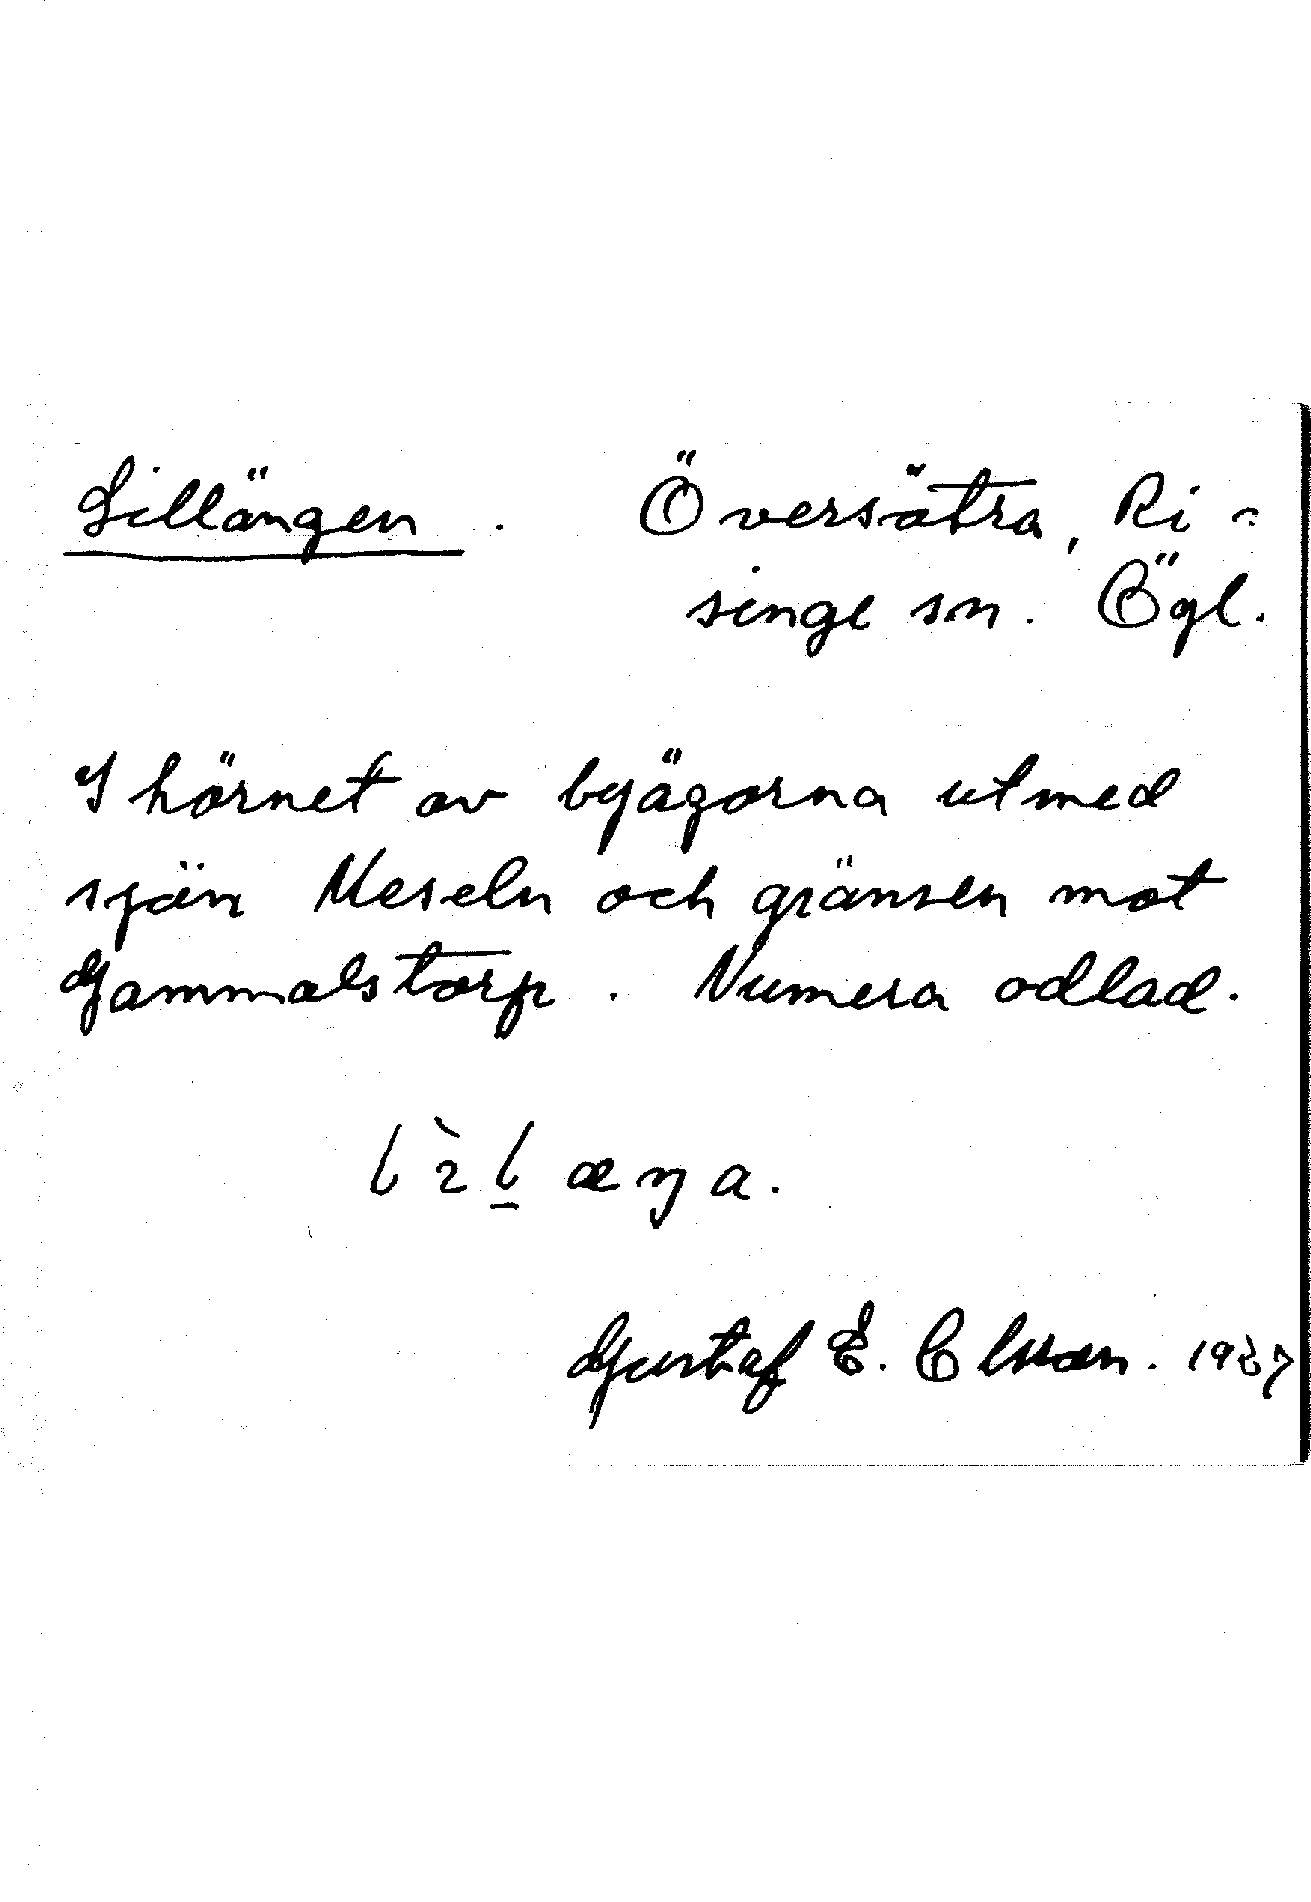 Lillängen. Översätra, Ri-
singe sn. Ögl.
I hörnet av byägorna utmed
sjön Meseln och gränsen mot
Gammalstorp. Numera odlad.
Gustaf E. Clsson. 1937